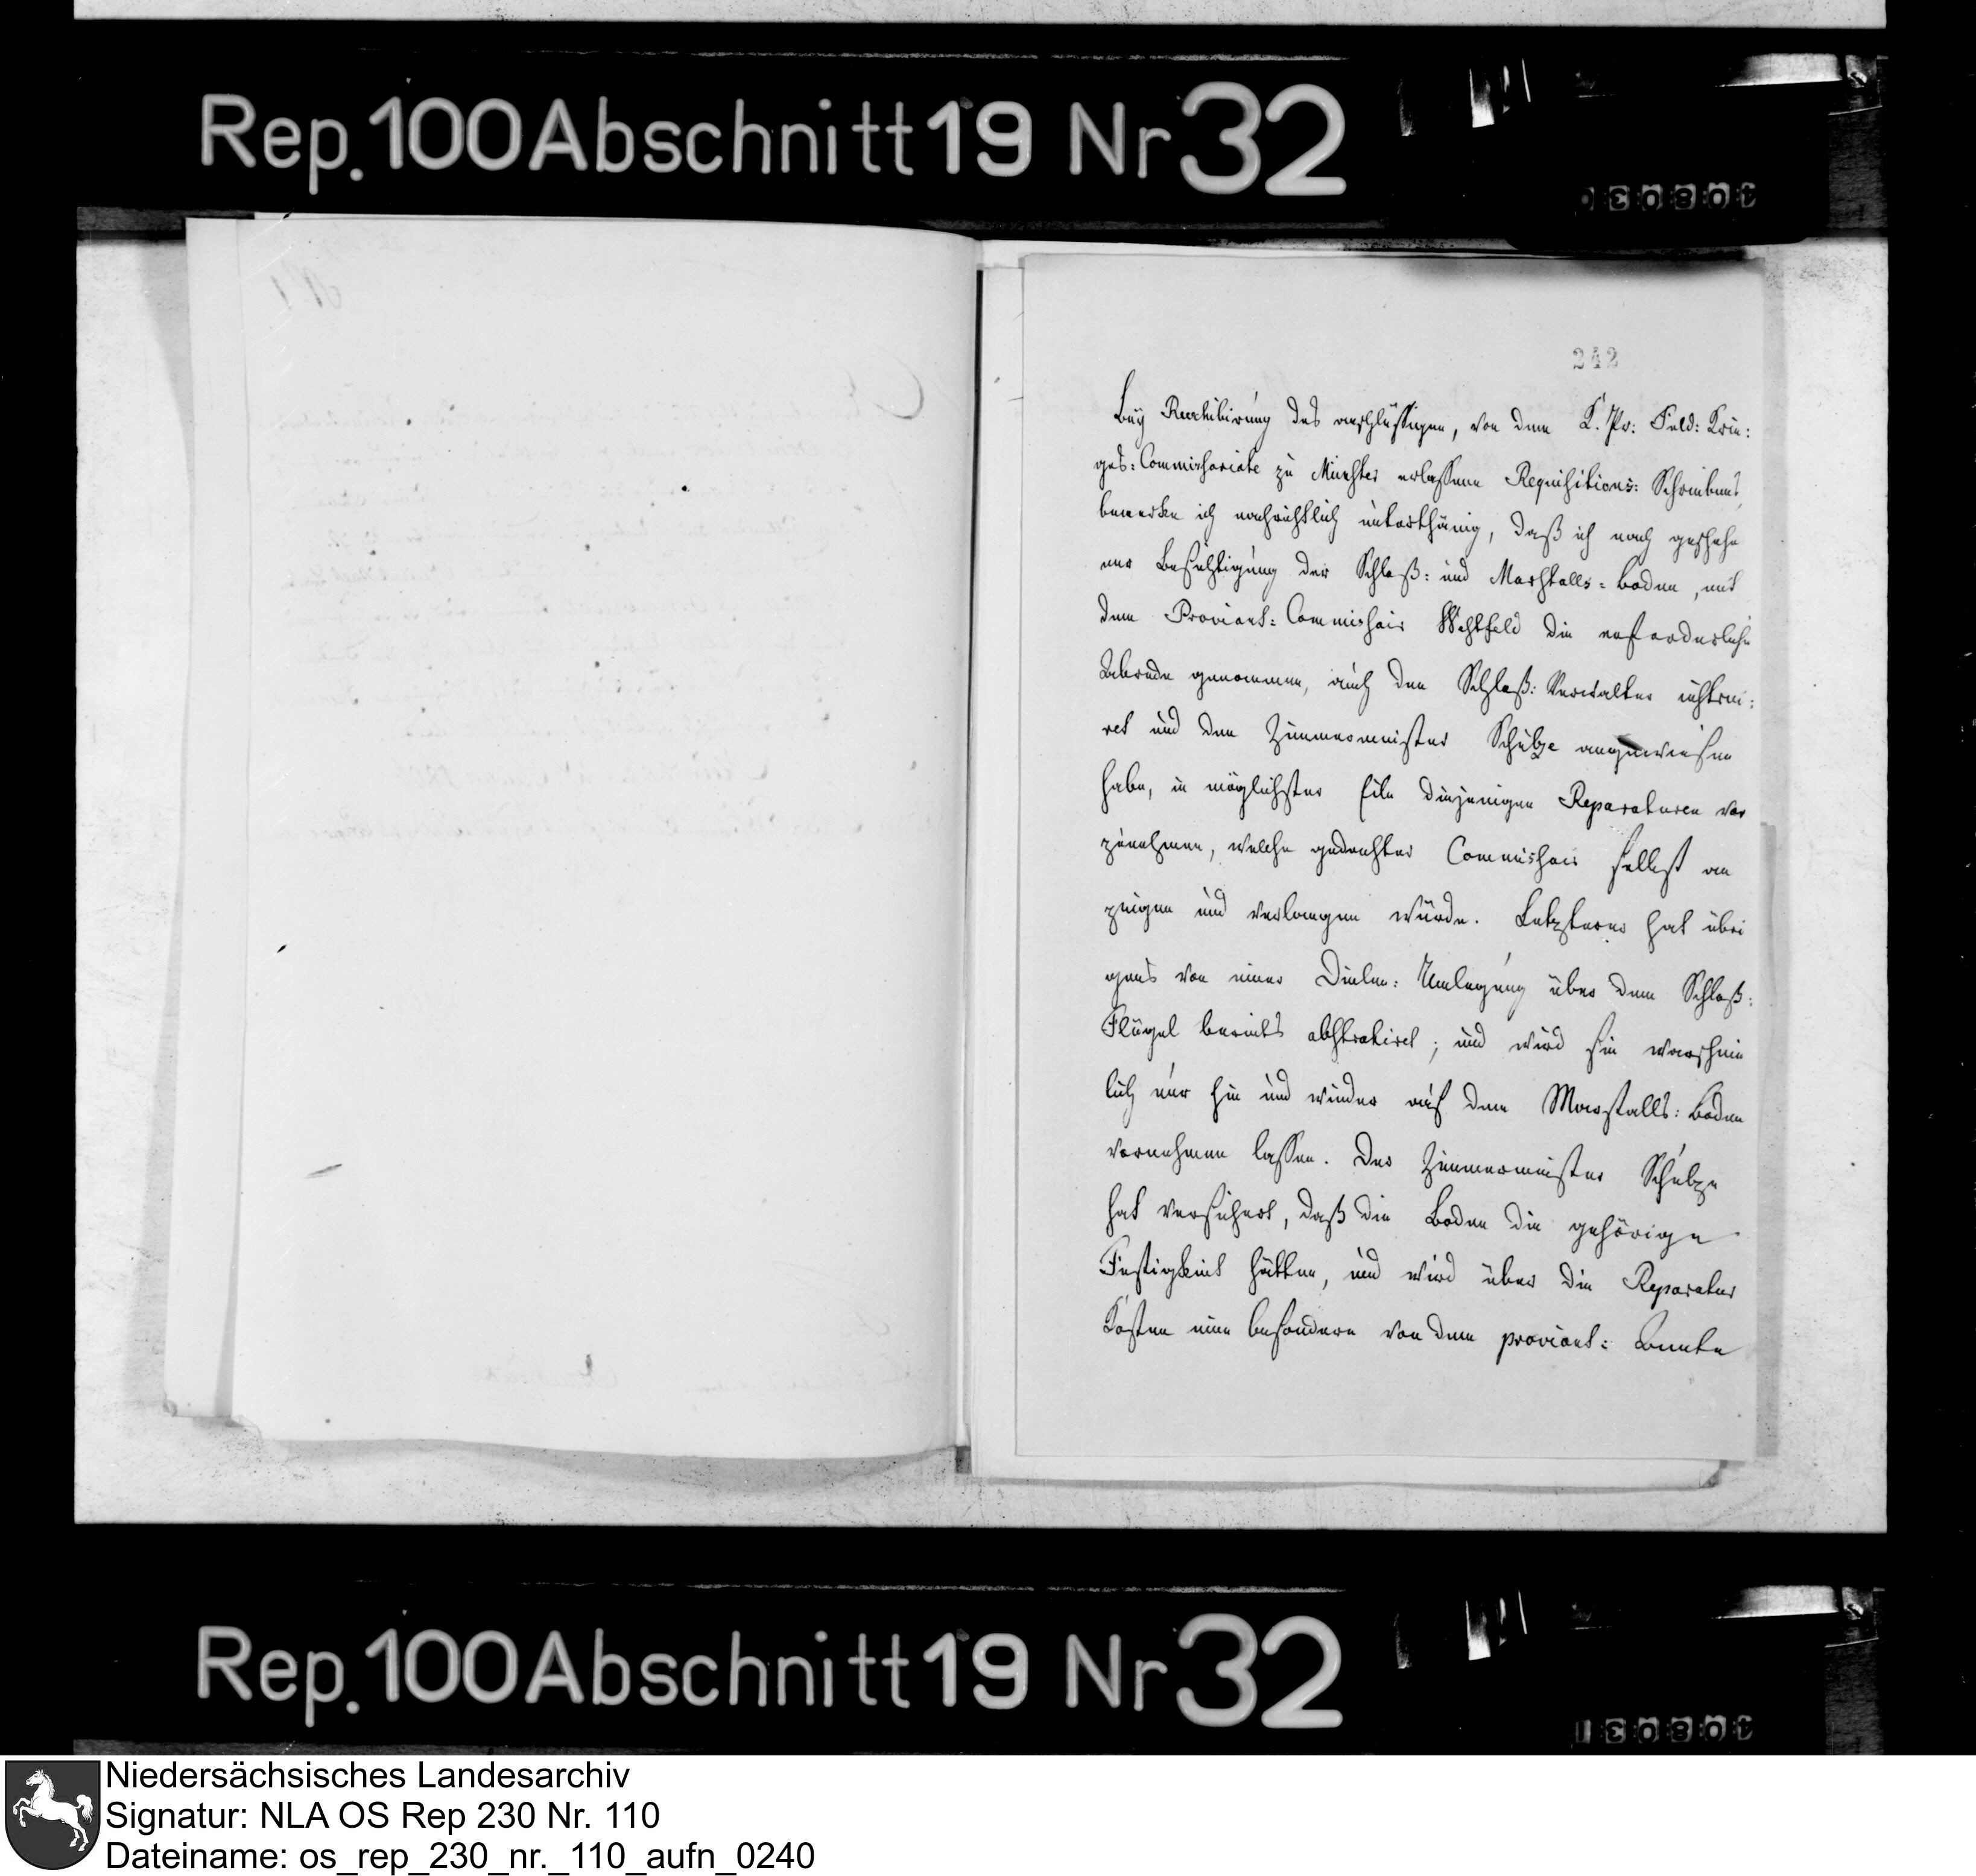 Rep.100Abschnitt19 Nr32
242
Bey Rückhibirung des anschlüssigen, von dem K. Pr: Feld: Krie:
ges: Commissariate zu Münster erlassenen Requisitions: Schreibens,
bemerke ich nachrichtlich unterthänig, daß ich nach geschehe
ner Besichtigung der Schloß: und Marstalls: Boden, mit
dem Proviant: Commissair Westfeld die erforderliche
Abrede genommen, auch den Schloß: Verwalter instrui:
ret und den Zimmermeister Schulze angewiesen
habe, in möglichster Eile diejenigen Reparaturen vor
zunehmen, welche gedachter Commissair selbst an
zeigen und verlangen würde. Letzterer hat übri
gens von einer Dielen: Umlegung über dem Schloß:
Flügel bereits abstrahiret; und wird sie warschein
lich nur hin und wieder auf dem Marstalls: Boden
vornehmen lassen. Der Zimmermeister Schulze
hat versichert, daß die Boden die gehörige
Festigkeit hätten, und wird über die Reparatur
Kosten eine besondere von dem proviant: Beamte
Rep.100Abschnitt19 Nr32
Niedersächsisches Landesarchiv
Signatur: NLA OS Rep 230 Nr. 110
Dateiname: os_rep_230_nr._110_aufn_0240